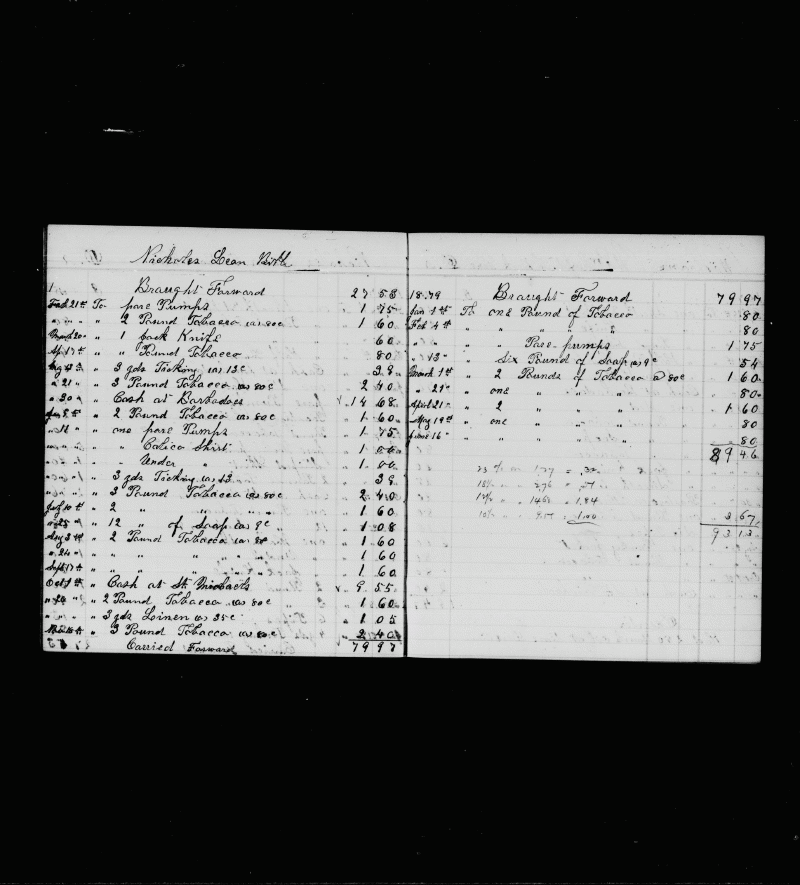 Nicholas Lean
Braught Forward 27 53
Feb 21st To pare Pumps 1 75
" " " 2 Pound Tobacco as 80c 1 60
March 20 " 1 Cock Knife 60
Ap 17th " " Pound Tobacco 80
" 3 yds Ticking as 13c 38
" 21 " 3 Pound Tobacco as 80c 2 40
" 30 " Cash at Barbadoes 14 68
" 2 Pound Tobacco as 80c 1 60
" 12 " one pare Pumps 1 75
" " Calico Shirt 1
" Under " 1
" 3 yds Ticking as 13 38
" " 3 Pound Tobacco as 80c 2 40
July 10th " 2 " " " 1 60
" 25 " 12 " of Soap as 9c 1 08
Aug 3rd " 2 Pound Tobacco as 80 1 60
" 24 " " " " " 1 60
Sept 17th " " " " " 1 60
Oct 1st " Cash at St Micheals 9 55
" 20 " 2 Pound Tobacco as 80c 1 60
" " " 3 yds Linen as 35c 1 05
" 3 Pound Tobacco as 80c 2 40
Carried Forward 79 97
1879 Braught Forward 79 97
Jan 1st To one Pound of Tobacco 80
Feb 4th " " " " " 80
" " " Pare pumps 1 75
" 13 " " Six Pound of Soap as 9c 54
March 1st " 2 Pounds of Tobacco a 80c 1 60
" 21 " " one " " " 80
April 21 " " 2 " " " 1 60
May 19th " one " " " 80
June 16 " " " " " 80
89 46
1468 = 1.84
3 67
93 13